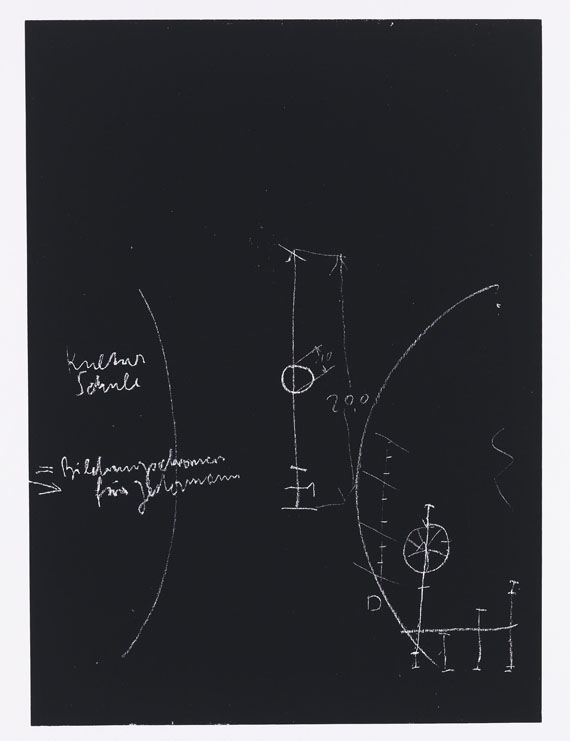 Kultur
Schule
= Bildungschancen
für Jedermann
20,0
D